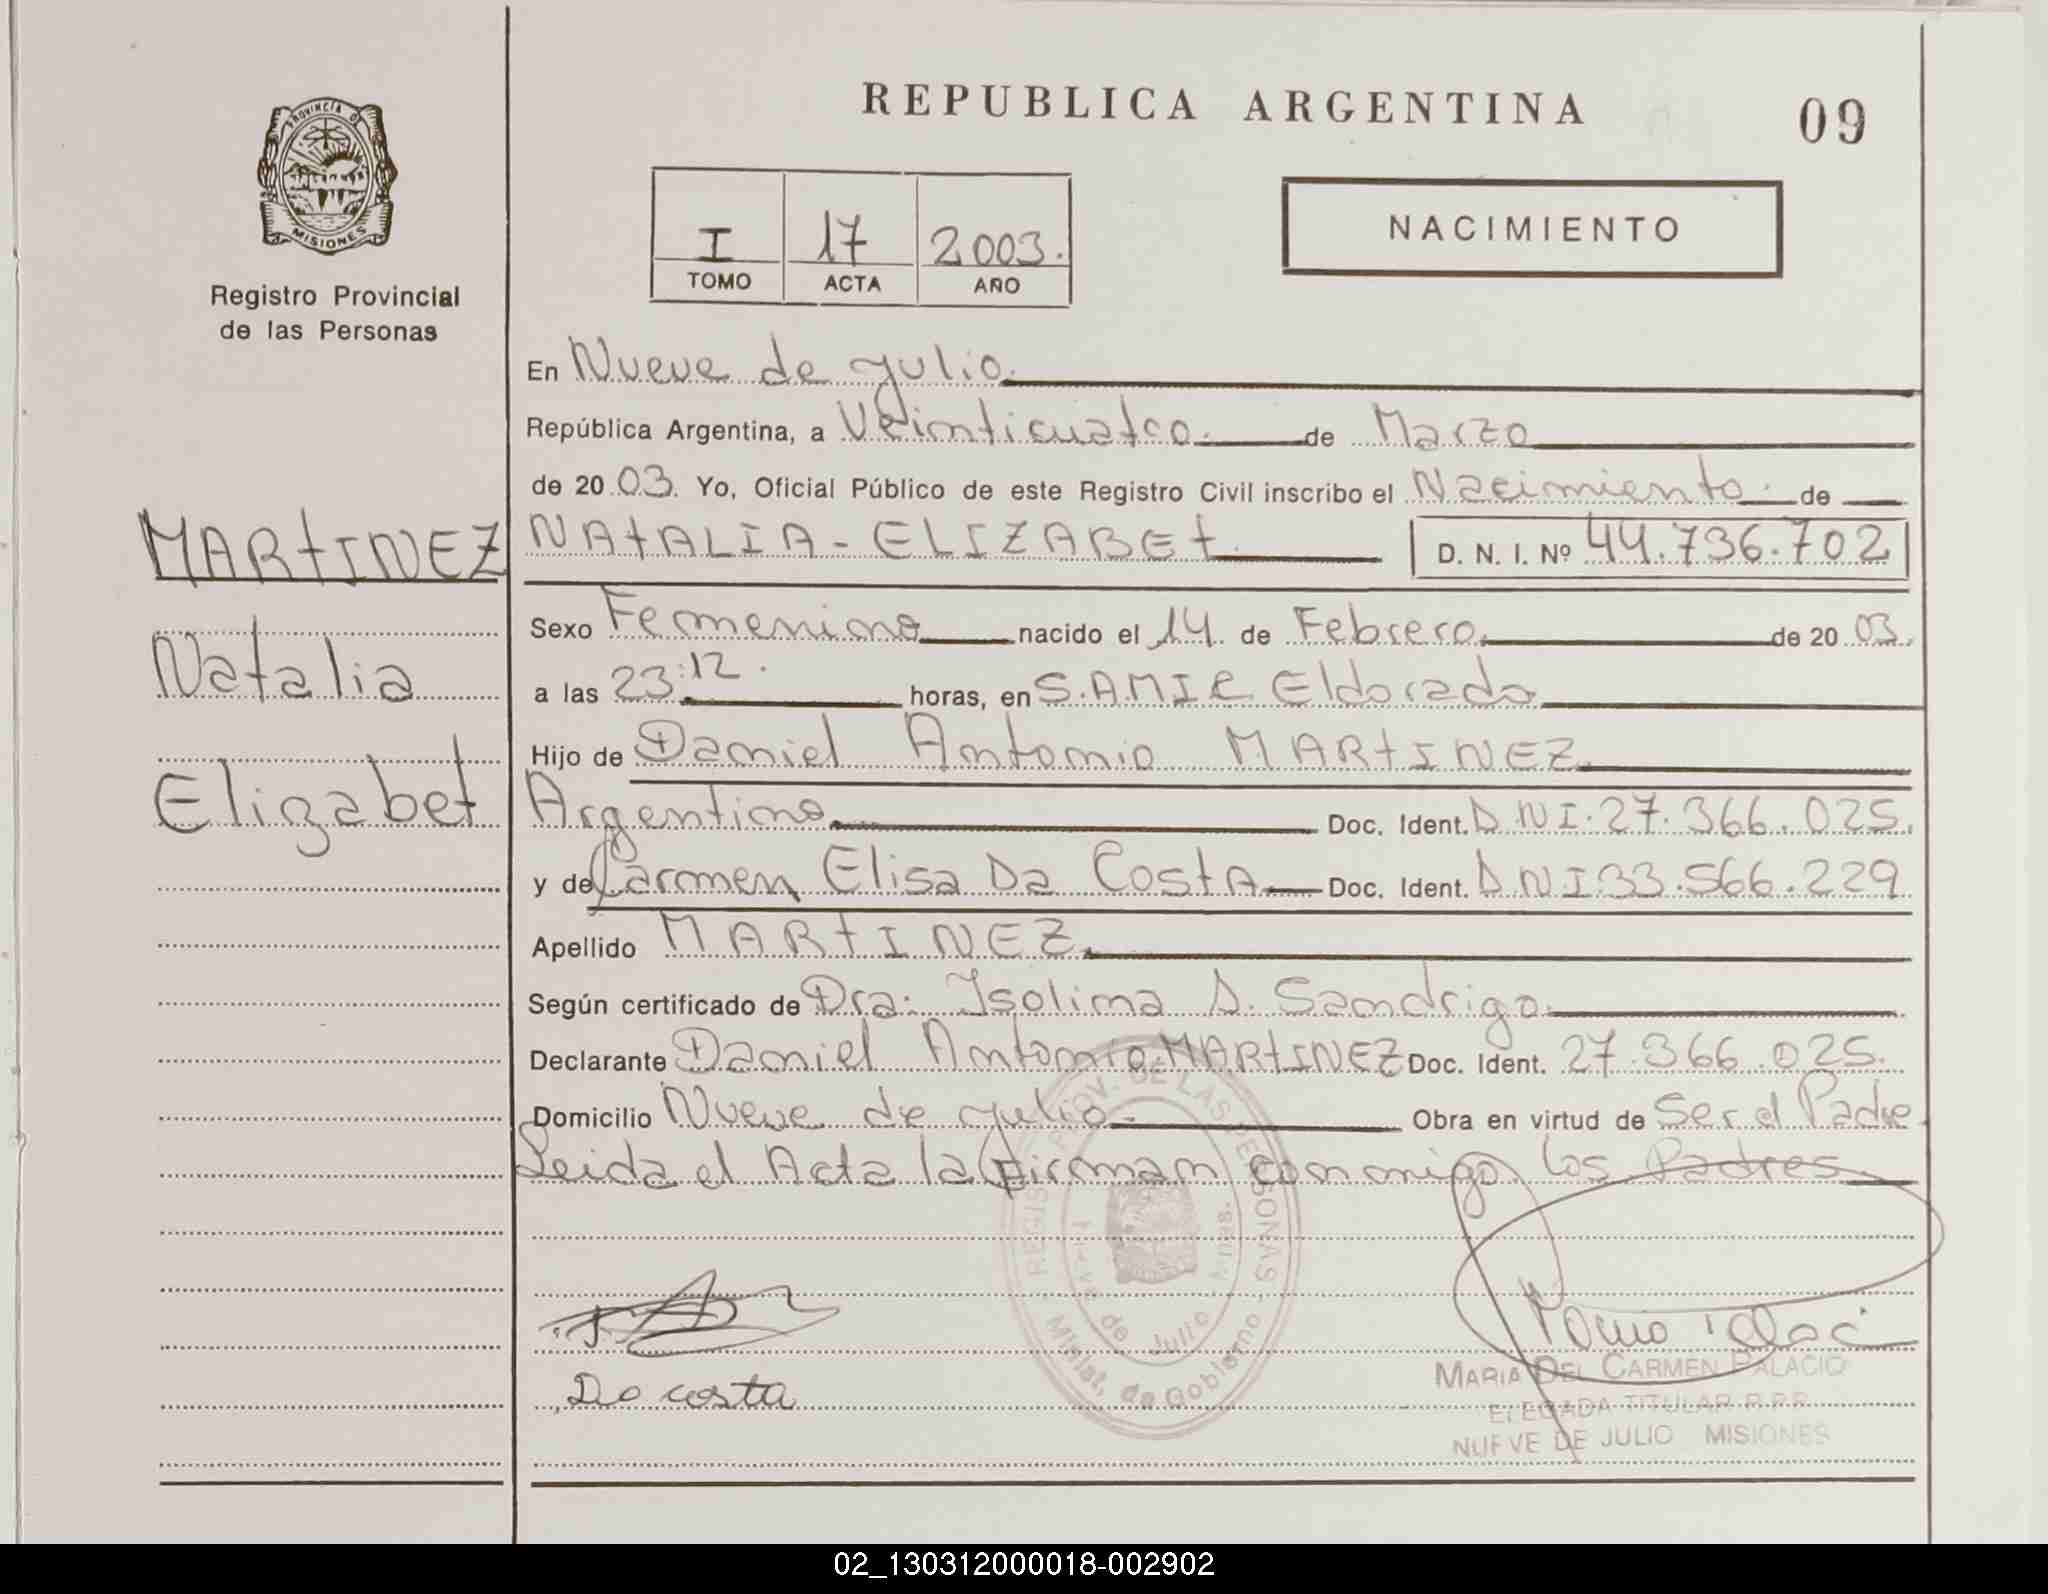 REPUBLICA ARGENTINA
09
PROVINCIA DE
MISIONES
Registro Provincial
de las Personas
I 17 2003.
TOMO ACTA AÑO
NACIMIENTO
En Nueve de julio.
República Argentina, a Veinticuatro. de Marzo
de 2003. Yo, Oficial Público de este Registro Civil inscribo el Nacimiento. de
MARTINEZ
NATALIA-ELIZABET. D. N. I. Nº 44.736.702
Natalia
Elizabet
Sexo Femenino nacido el 14 de Febrero. de 2003.
a las 23:12. horas, en S.A.M.I.C. Eldorado
Hijo de Daniel Antonio MARTINEZ.
Argentino Doc. Ident. D.N.I. 27.366.025.
y de Carmen Elisa Da Costa Doc. Ident. D.N.I 33.566.229
Apellido MARTINEZ.
Según certificado de Dra: Isolina D. Sandrigo.
Declarante Daniel Antonio MARTINEZ Doc. Ident. 27.366.025.
Domicilio Nueve de julio. Obra en virtud de Ser el Padre
Leida el Acta la firman conmigo los Padres.
REGIST. PROV. DE LAS PERSONAS
Nueve de Julio - Mnes.
Minist. de Gobierno
Da costa
MARIA DEL CARMEN PALACIO
DELEGADA TITULAR R.P.P.
NUEVE DE JULIO MISIONES
02_130312000018-002902